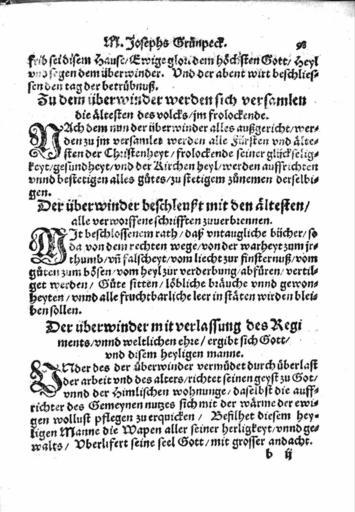 M. Josephs Grünpeck. 98
frid sei disem Hause/ Ewige glori dem höchsten Gott/ Heyl
vnd segen dem überwinder. Vnd der abent wirt beschlies-
sen den tag der betrübnuß.
Zu dem überwinder werden sich versamlen
die ältesten des volcks/ jm frolockende.
NAch dem nun der überwinder alles außgericht/ wer-
den zu jm versamlet werden alle Fürsten vnd älte-
sten der Christenheyt/ frolockende seiner glückselig-
keyt/ gesundheyt/ vnd der Kirchen heyl/ werden auffrichten
vnnd bestetigen alles gůtes/ zu stetigem zůnemen derselbi-
gen.
Der überwinder beschleußt mit den ältesten/
alle verworffene schrifften zuuerbrennen.
MIt beschlossenem rath/ daß vntaugliche bücher/ so
da von dem rechten wege/ von der warheyt zum jr-
thumb/ vñ falscheyt/ vom liecht zur finsternuß/ vom
güten zum bösen/ vom heyl zur verderbung/ abfüren/ vertil-
get werden/ Gůte sitten/ löbliche bräuche vnnd gewon-
heyten/ vnnd alle fruchtbarliche leer in stäten würden blei-
ben sollen.
Der überwinder mit verlassung des Regi
ments/ vnnd weltlichen ehre/ ergibt sich Gott/
vnd disem heyligen manne.
VNder des der überwinder vermüdet durch überlast
der arbeit vnd des alters/ richtet seinen geyst zu Got/
vnnd der Himlischen wohnunge/ daselbst die auff-
richter des Gemeynen nutzes sich mit der wärme der ewi-
gen wollust pflegen zu erquicken/ Befilhet diesem hey-
ligen Manne die Wapen aller seiner herligkeyt/ vnnd ge-
walts/ Vberlifert seine seel Gott/ mit grosser andacht.
b ij